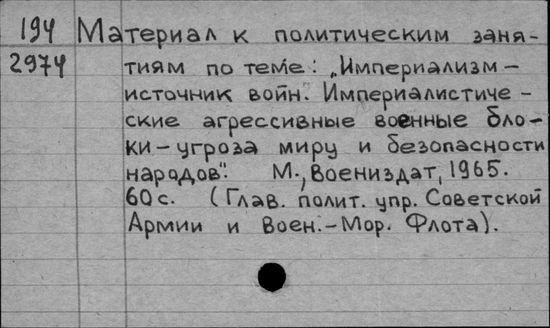 194 Материал к политическим заня-
2974 тиям по теме: „Империализм —
источник войн. Империалистиче-
ские агрессивные военные бло-
ки — угроза миру и безопасности
народов". М., Воениздат, 1965.
60 с. (Глав. полит. упр. Советской
Армии и Воен.-Мор. Флота).